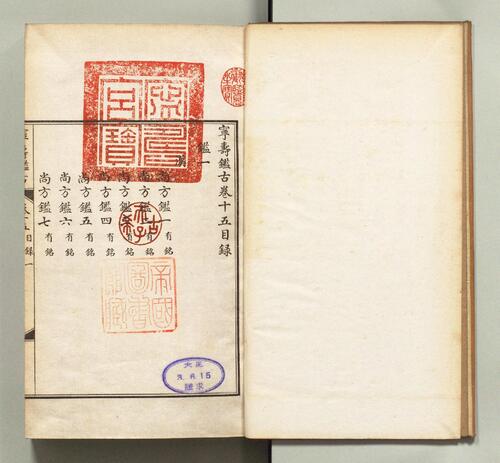 寧壽鑑古卷十五目録
鑑一
漢
尚方鑑一有銘
尚方鑑二有銘
尚方鑑三有銘
尚方鑑四有銘
尚方鑑五有銘
尚方鑑六有銘
尚方鑑七有銘
古希天子
帝國圖書館藏
大正
15
購求